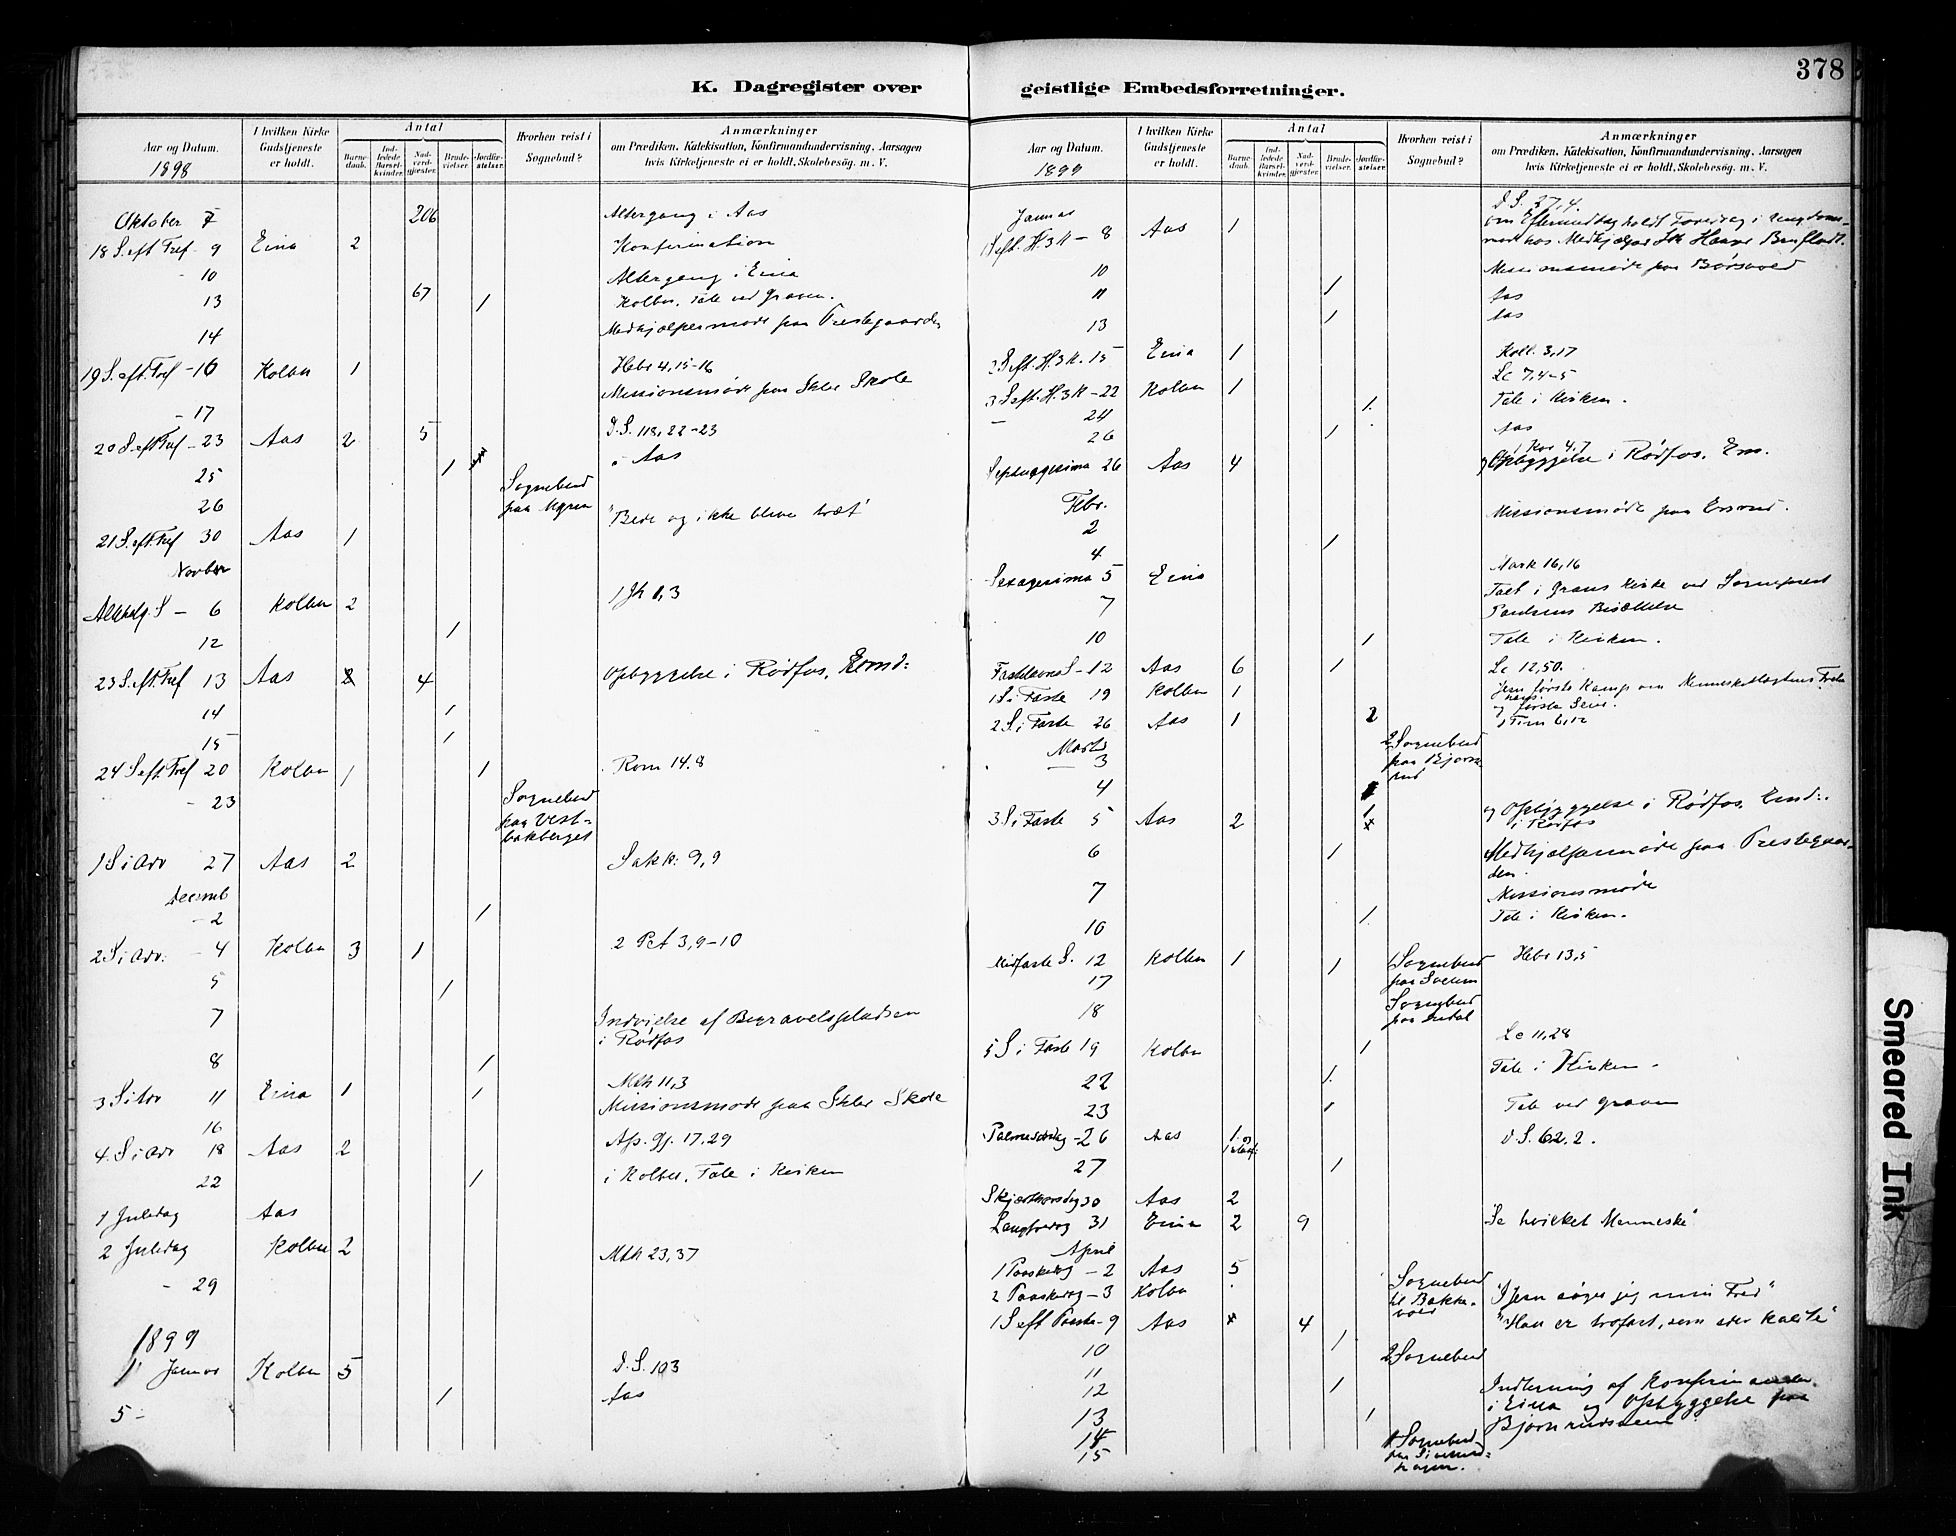 378
K. Dagregister over geistlige Embedsforretninger.
Aar og Datum. I hvilken Kirke Gudstjeneste er holdt. Antal Barnedaab. Indledede Barselkvinder. Nadverdgjester. Brudevielser. Jordfæstelser. Hvorhen reist i Sognebud? Anmærkninger om Prædiken, Katekisation, Konfirmandundervisning, Aarsagen hvis Kirketjeneste ei er holdt, Skolebesøg. m. V.
1898
Oktober 7 206 Altergang i Aas
18 S. eft Tref - 9 Eina 2 Konfirmation
- 10 67 Altergang i Eina
13 1 Kolbu. Tale ved Graven.
14 Medhjælpermøde paa Prestegaarden
19 S. eft. Tref - 16 Kolbu 1 Hebr 4,15-16
- 17 Missionsmøde paa Skole
20 S. eft Tref - 23 Aas 2 5 D.S. 118, 22-23
25 1 i Aas
26 Sognebud paa
21 S. eft. Tref 30 Aas 1 "Bede og ikke blive træt"
Novber
S - 6 Kolbu 2 1 Jh 1,3
12 1
23 S. eft. Tref 13 Aas 4 Opbyggelse i Rødfos,
14 1
15 1
24 S eft. Tref 20 Kolbu 1 1 Rom 14.8
- 23 Sognebud paa Vestbakberget
1 S i Adv 27 Aas 2 Sakk: 9,9
Decemb
- 2 1
2 S i Adv: - 4 Kolbu 3 1 2 Pet 3,9-10
5 1
7 Indvielse af Begravelsespladsen i Rødfos
8 1
3 S i Adv 11 Eina 1 1 Mth 11,3
16 Missionsmøde paa Skole
4 S i Adv 18 Aas 2 Ap. Gj. 17,29
22 1 i Kolbu, Tale i Kirken
1 Juledag Aas
2 Juledag Kolbu 2 Mth 23,37
- 29
1899
1 Januar Kolbu 5 D.S. 103
5 - 1 Aas
Aar og Datum. I hvilken Kirke Gudstjeneste er holdt. Antal Barnedaab. Indledede Barselkvinder. Nadverdgjester. Brudevielser. Jordfæstelser. Hvorhen reist i Sognebud? Anmærkninger om Prædiken, Katekisation, Konfirmandundervisning, Aarsagen hvis Kirketjeneste ei er holdt, Skolebesøg. m. V.
1899
Januar D.S. 37,4.
1 S eft. H. 3 K - 8 Aas 1 om Eftermiddag holdt Foredrag i
10 Missionsmøde paa
11 1 Aas
13 1 Aas
2 S eft. H. 3 K. 15 Eina 1 Koll. 3,17
3 S eft. H. 3 K - 22 Kolbu 1 Lc 7,4-5
- 24 1 Tale i Kirken.
26 1 Aas
Septuagesima 26 Aas 4 1 Kor 4,7 og Opbyggelse i Rødfos.
Febr.
2 Missionsmøde paa
4 1
Sexagesima 5 Eina Mark 16,16
7 Talt i Grans Kirke ved Sogneprest Paulsens Bisættelse
10 1 Tale i Kirken.
Fastelavns S - 12 Aas 6 1 Lc 12,50.
1 S i Faste 19 Kolbu 1 første Kamp om Menneskeslægtens og første Seier.
2 S. i Faste 26 Aas 1 2 1 Tim 6,12
Marts
- 3 2 Sognebud paa
4
3 S i Faste 5 Aas 2 1 og Opbyggelse i Rødfos. i Rødfos
6 1 Medhjælpermøde paa Prestegaarden.
7 Missionsmøde
10 1 Tale i Kirken.
Midfaste S. 12 Kolbu 1 1 Sognebud Hebr 13,5
17
18 Sognebud paa
5 S i Faste 19 Kolbu 1 Lc 11,28
22 1 Tale i Kirken.
23 1 Tale ved Graven
Palmesøndag - 26 Aas D.S. 62,2.
27 1
Skjærthorsdag 30 Aas 2
Langfredag 31 Eina 2 9 "Se hvilket Menneske"
April
1 Paaskedag - 2 Aas 5
2 Paaskedag - 3 Kolbu Sognebud til "I Jesu søger jeg min Fred"
1 S eft Paaske - 9 Aas 4 "Han er trofast, som eder kaldte"
10 1
11 2 Sognebud
12 1 Indlemning af Konfirmander i Eina og Opbyggelse paa
13 1
14
15 Sognebud paa
Smeared Ink